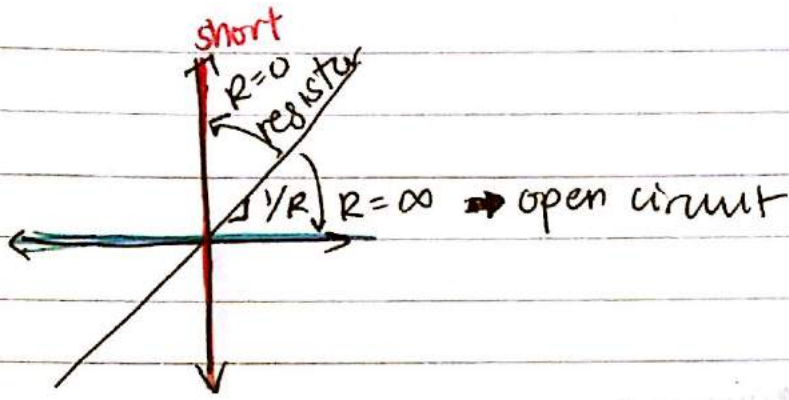 short
R=0
resistor
1/R R=∞ → open circuit